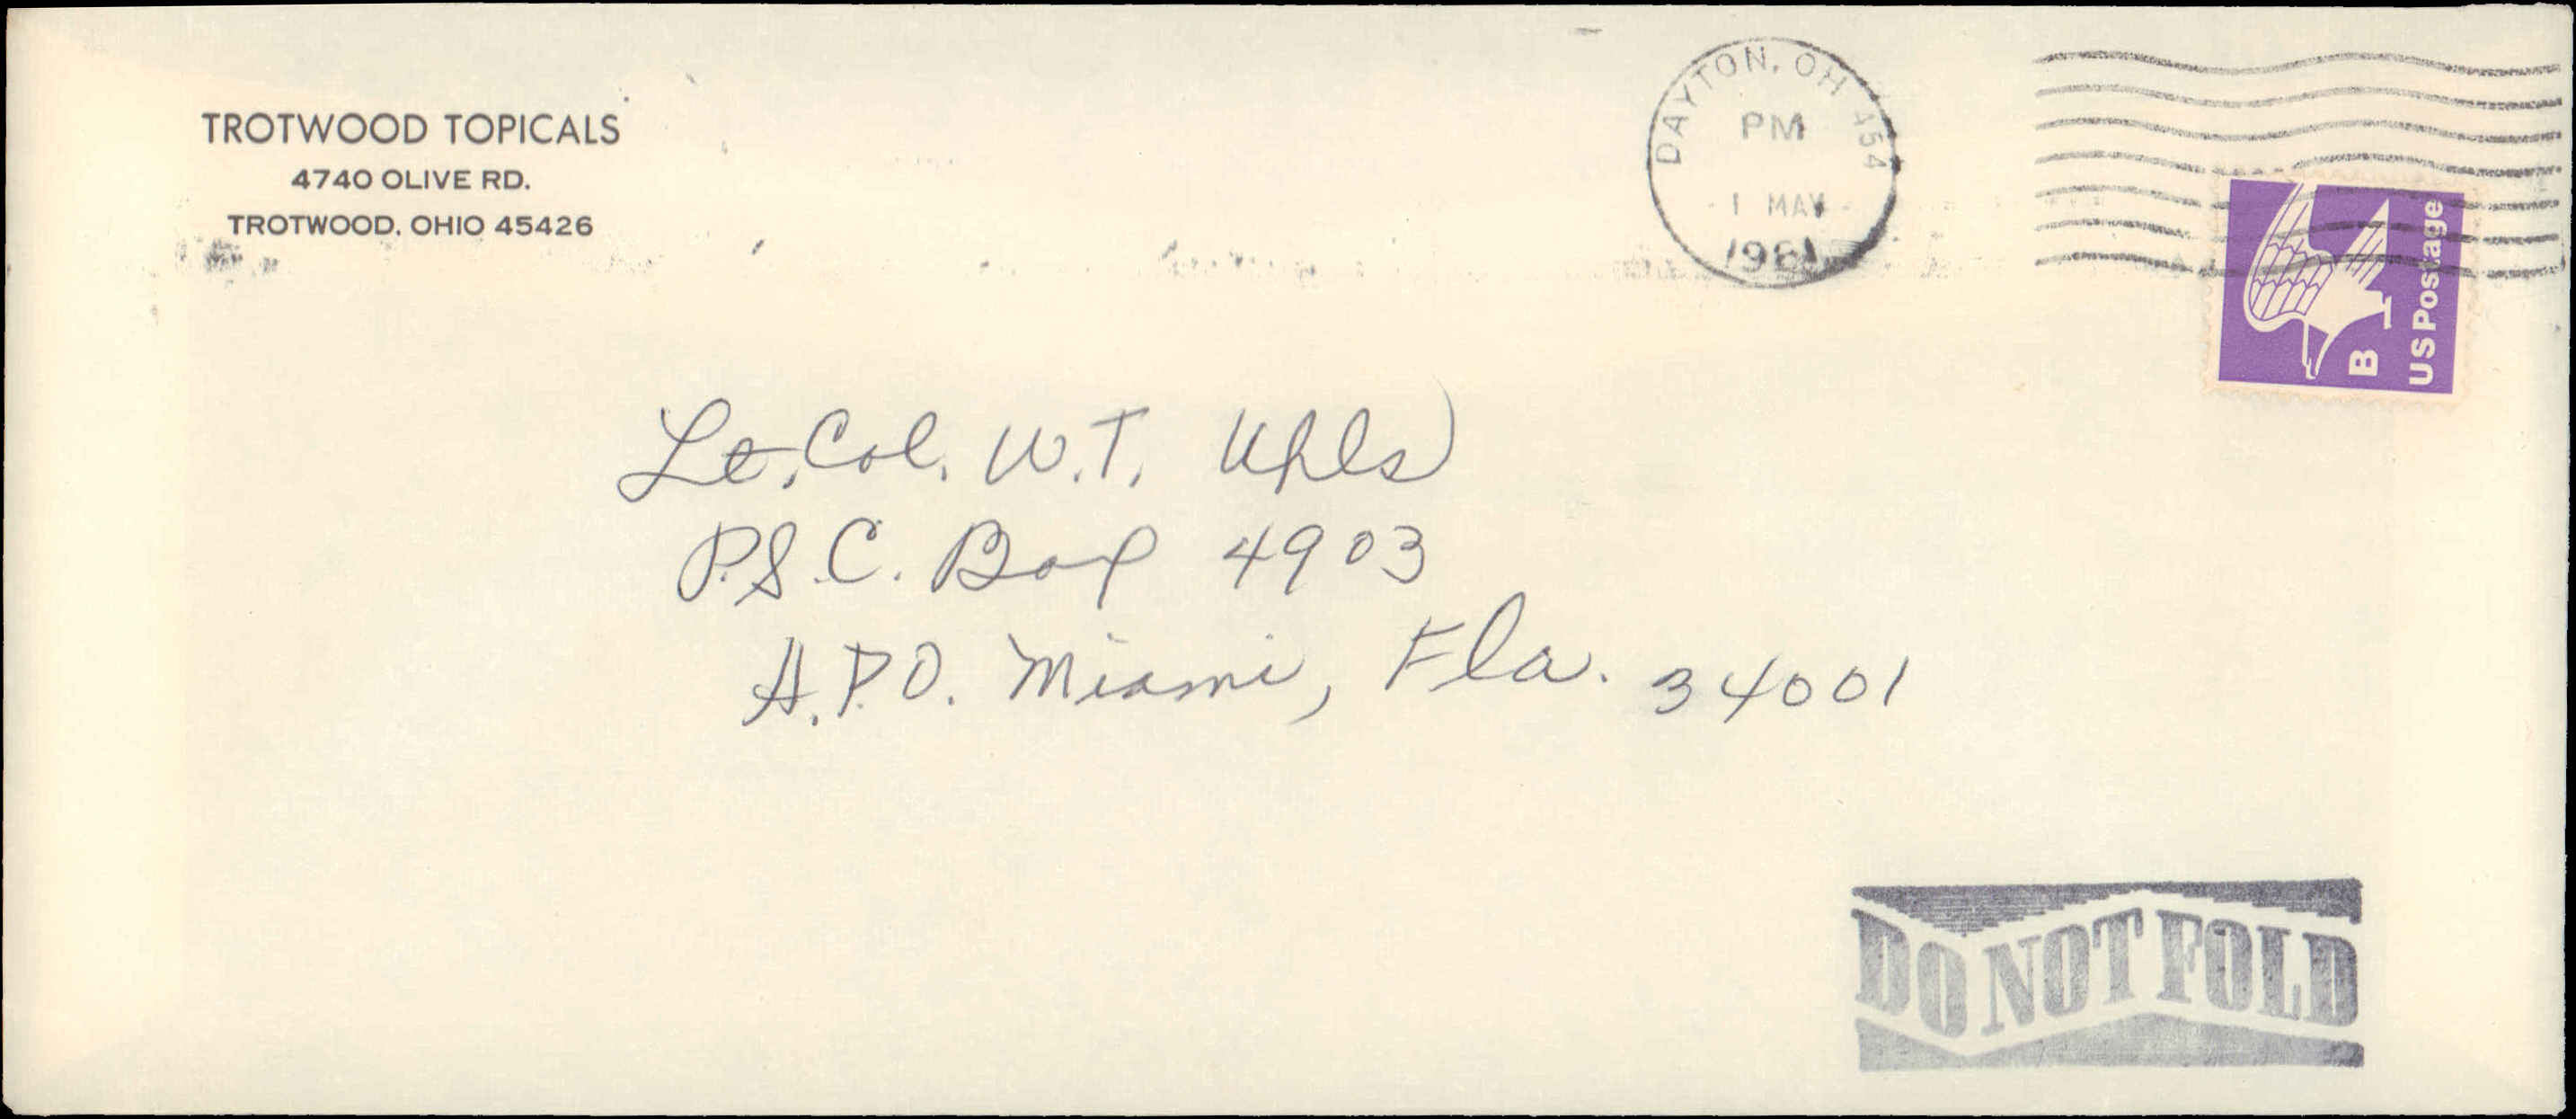 TROTWOOD TOPICALS
4740 OLIVE RD.
TROTWOOD, OHIO 45426
DAYTON, OH 454
PM
1 MAY
1981
US Postage
B
Lt. Col. W.T. Uhls
P.S.C. Box 4903
A.P.O. Miami, Fla. 34001
DO NOT FOLD